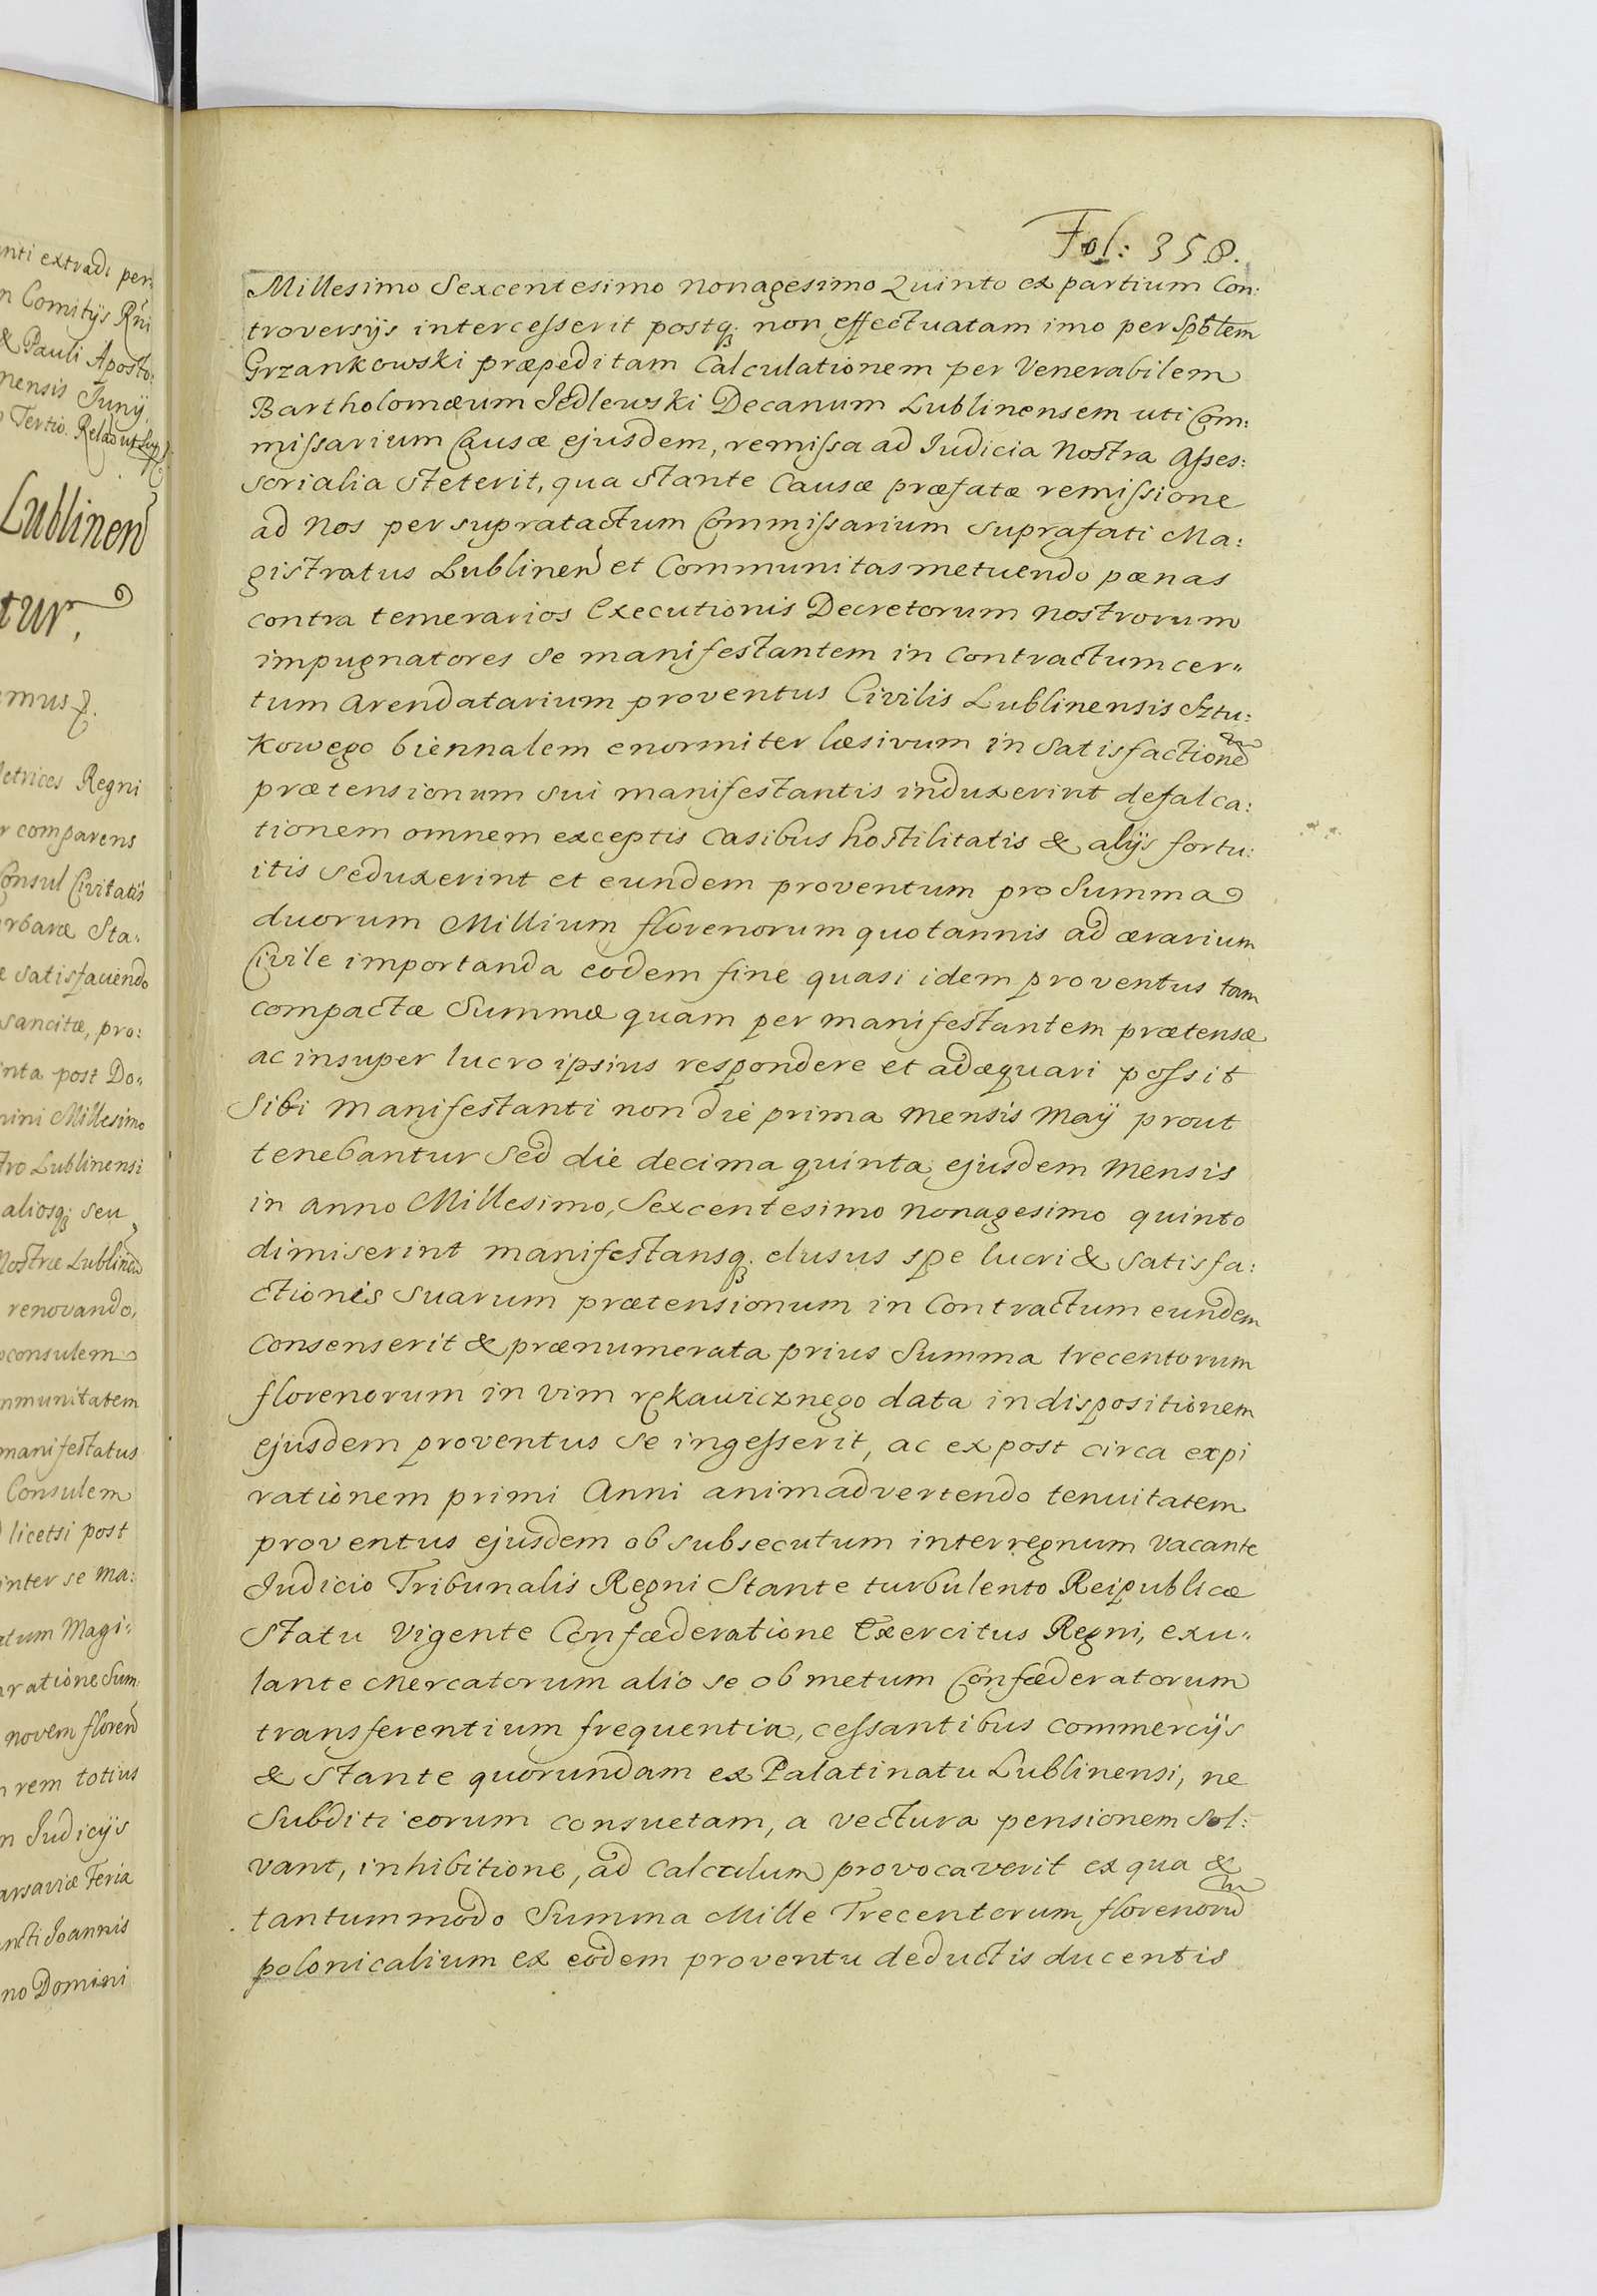 nti extradi per:
n Comitijs Rñi
& Pauli Aposto:
mensis Junij
Tertio. Relao ut Sup
Lublinen
tur,
mus
Metrices Regni
r comparens
Consul Civitatis
rbanæ Sta:
e satisfaciendo
sancitæ, pro:
nta post Do:
mini Millesimo
tro Lublinensi
aliosq; seu
Nostræ Lublinen
renovando,
oconsulem
mmunitatem
manifestatus
Consulem
licetsi post
inter se ma:
atum Magi:
ratione Sum:
novem floren
rem totius
n Judicijs
arsaviæ Feria
ncti Joannis
no Domini
Fol: 358.
Millesimo Sexcentesimo Nonagesimo Quinto ex partium Con:
troversijs intercesserit postq; non effectuatam imo per Spbtem
Grzankowski præpeditam Calculationem per Venerabilem
Bartholomæum Jedlewski Decanum Lublinensem uti Com:
missarium Causæ ejusdem, remissa ad Judicia Nostra Asses:
sorialia steterit, qua stante Causæ præfatæ remissione
ad Nos per supratactum Commissarium suprafati Ma:
gistratus Lublinen et Communitas metuendo pœnas
contra temerarios Executionis Decretorum nostrorum
impugnatores se manifestantem in Contractum cer:
tum Arendatarium proventus Civilis Lublinensis Sztu:
kowego biennalem enormiter læsivum in satisfactionem
prætensionum sui manifestantis induxerint defalca:
tionem omnem exceptis casibus hostilitatis & alijs fortu:
itis seduxerint et eundem proventum pro Summa
duorum Millium florenorum quotannis ad ærarium
Civile importanda eodem fine quasi idem proventus tam
compactæ Summæ quam per manifestantem prætensæ
ac insuper lucro ipsius respondere et adæquari possit
Sibi Manifestanti non die prima Mensis Maij prout
tenebantur Sed die decima quinta ejusdem Mensis
in anno Millesimo, Sexcentesimo nonagesimo quinto
dimiserint manifestansq; elusus spe lucri & satisfa:
ctionis suarum prætensionum in Contractum eundem
consenserit & prænumerata prius Summa trecentorum
florenorum in vim rękawicznego data in dispositionem
ejusdem proventus se ingesserit, ac ex post circa expi
rationem primi Anni animadvertendo tenuitatem
proventus ejusdem ob subsecutum interregnum vacante
Judicio Tribunalis Regni Stante turbulento Reipublicæ
Statu Vigente Confœderatione Exercitus Regni, exu:
lante Mercatorum alio se ob metum Confœderatorum
transferentium frequentia, cessantibus commercijs
& Stante quorundam ex Palatinatu Lublinensi, ne
Subditi eorum consuetam, a vectura pensionem Sol:
vant, inhibitione, ad calculum provocaverit ex qua &
tantummodo Summa Mille Trecentorum florenorum
polonicalium ex eodem proventu deductis ducentis